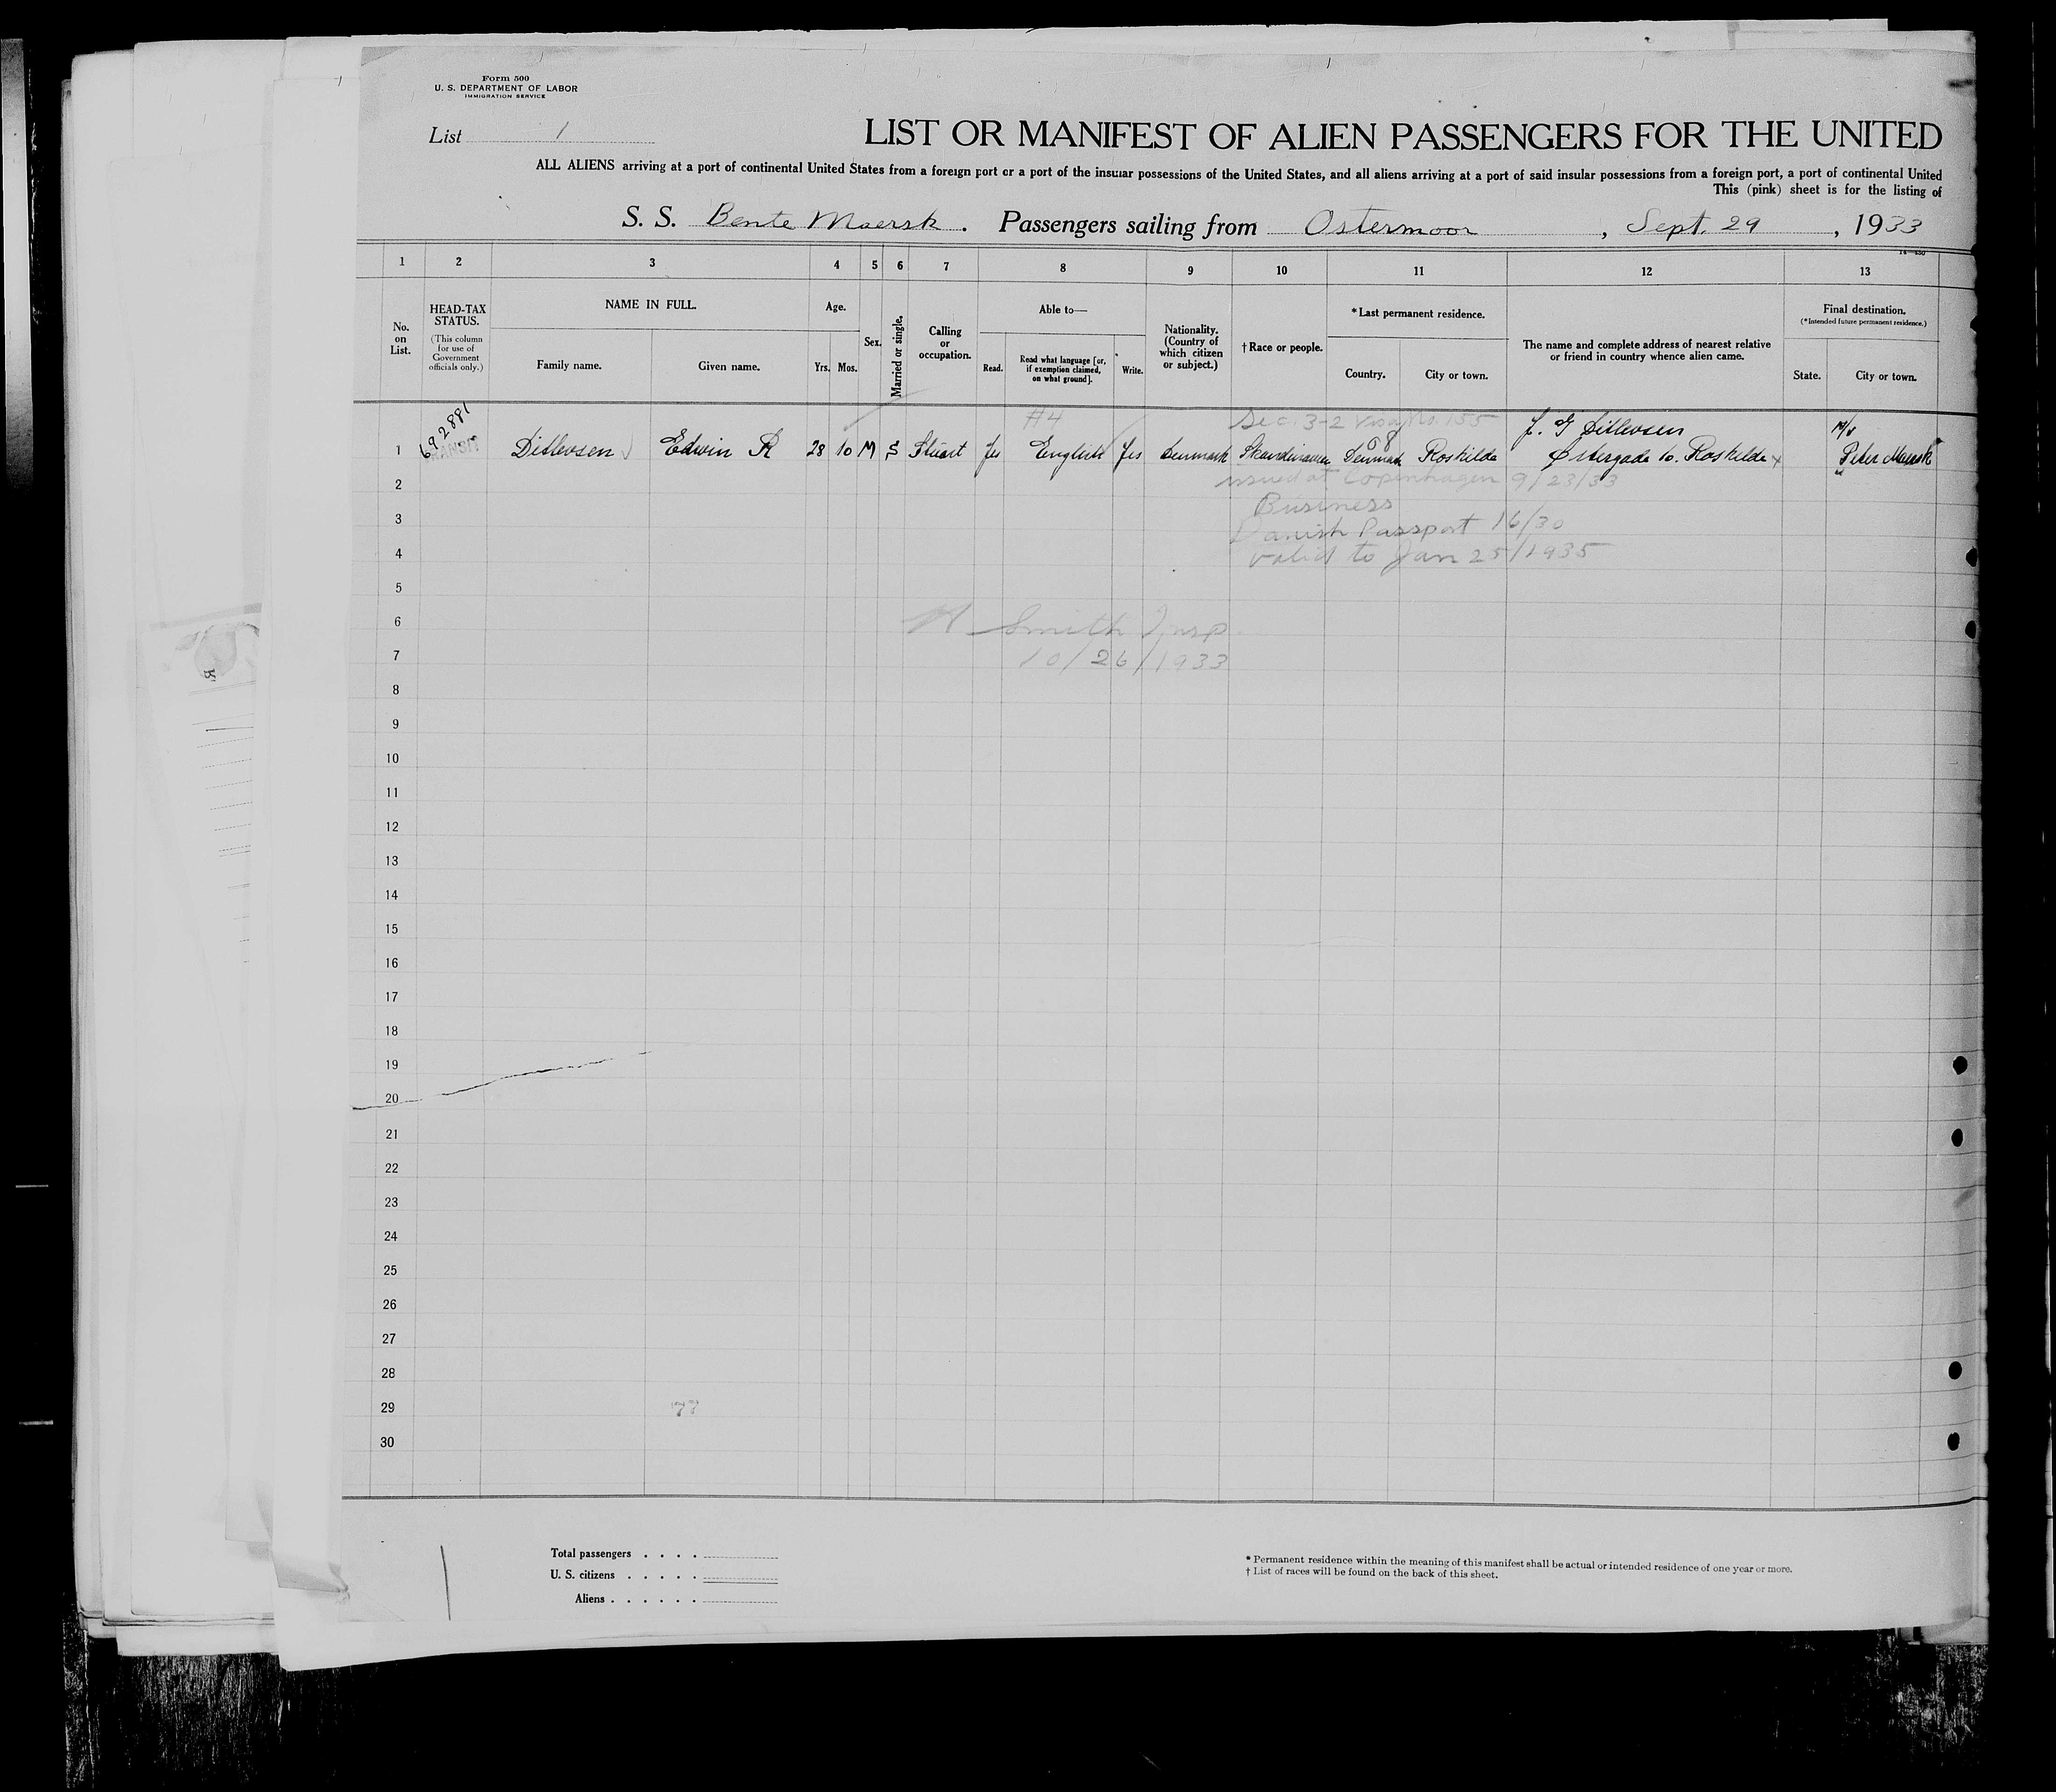 Form 500
U. S. DEPARTMENT OF LABOR
IMMIGRATION SERVICE
List 1
LIST OR MANIFEST OF ALIEN PASSENGERS FOR THE UNITED
ALL ALIENS arriving at a port of continental United States from a foreign port or a port of the insular possessions of the United States, and all aliens arriving at a port of said insular possessions from a foreign port, a port of continental United
This (pink) sheet is for the listing of
S. S. Bente Maersk. Passengers sailing from Ostermoor, Sept. 29, 1933
1 2 3 4 5 6 7 8 9 10 11 12 13
No. on List.
HEAD-TAX STATUS.
(This column for use of Government officials only.)
NAME IN FULL.
Family name. Given name.
Age.
Yrs. Mos.
Sex.
Married or single.
Calling or occupation.
Able to—
Read. Read what language [or, if exemption claimed, on what ground]. Write.
Nationality. (Country of which citizen or subject.)
† Race or people.
* Last permanent residence.
Country. City or town.
The name and complete address of nearest relative or friend in country whence alien came.
Final destination.
(* Intended future permanent residence.)
State. City or town.
#4 Sec. 3-2 Visa No. 155 J. G Ditlevsen M/s
692881
TRANSIT
1 Ditlevsen Edwin R 28 10 M S Stuart Yes English Yes Denmark Skandinavian Denmark Roskilde Østergade 10. Roskilde Peter Maersk
68
2 issued at Copenhagen 9/23/33
Business
3 Danish Passport 16/30
4 valid to Jan 25/1935
5
6 Smith Insp
7 10/26/1933
8
9
10
11
12
13
14
15
16
17
18
19
20
21
22
23
24
25
26
27
28
29 77
30
Total passengers . . . .
U. S. citizens . . . . .
Aliens . . . . . .
* Permanent residence within the meaning of this manifest shall be actual or intended residence of one year or more.
† List of races will be found on the back of this sheet.